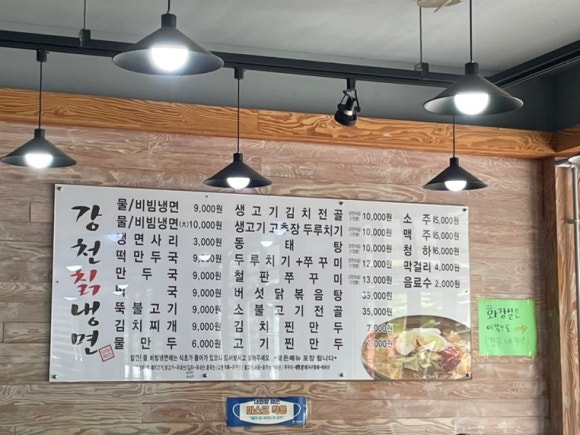 강천칡냉면
물/비빔냉면 9,000원
물/비빔냉면(大) 10,000원
냉면사리 3,000원
떡만두국 9,000원
만두국 9,000원
떡국 9,000원
뚝불고기 9,000원
김치찌개 9,000원
물만두 6,000원
생고기김치전골 10,000원
생고기고추장두루치기 10,000원
동태탕 10,000원
두루치기+쭈꾸미 12,000원
철판쭈꾸미 13,000원
버섯닭볶음탕 35,000원
소불고기전골 35,000원
김치찐만두 7,000원
고기찐만두 7,000원
소주 5,000원
맥주 5,000원
청하 6,000원
막걸리 4,000원
음료수 2,000원
*모든메뉴 포장 됩니다*
화장실은
마스크 착용